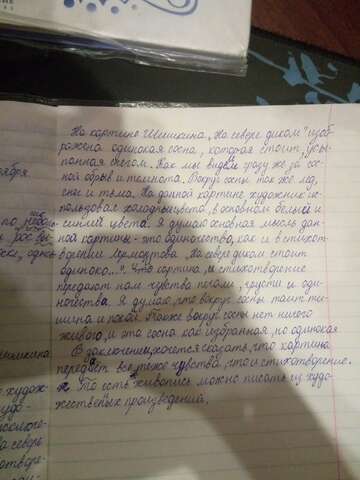 На картине Шишкина „На севере диком" изоб-
ражена одинокая сосна, которая стоит, усы-
панная снегом. Как мы видим сразу же за сос-
ной обрыв и темнота. Вокруг сосны так же лёд,
снег и тьма. На данной картине художник ис-
пользовал холодные цвета, в основном белый и
синий цвета. Я думаю основная мысль дан-
ной картины - это одиночество, как и в стихот-
ворении Лермонтова „На севере диком стоит
одиноко...". Эта картина, и стихотворение
передают нам чувства печали, грусти и оди-
ночества. Я думаю, что вокруг сосны таит ти-
шина и покой. Также вокруг сосны нет ничего
живого, и эта сосна как избранная, но одинокая
В заключении, хочется сказать, что картина
передаёт все те же чувства, что и стихотворение.
То есть живопись можно писать из худо-
жественных произведений.
ября.
по
ске, одно
шишкина
художе-
худо-
на севере